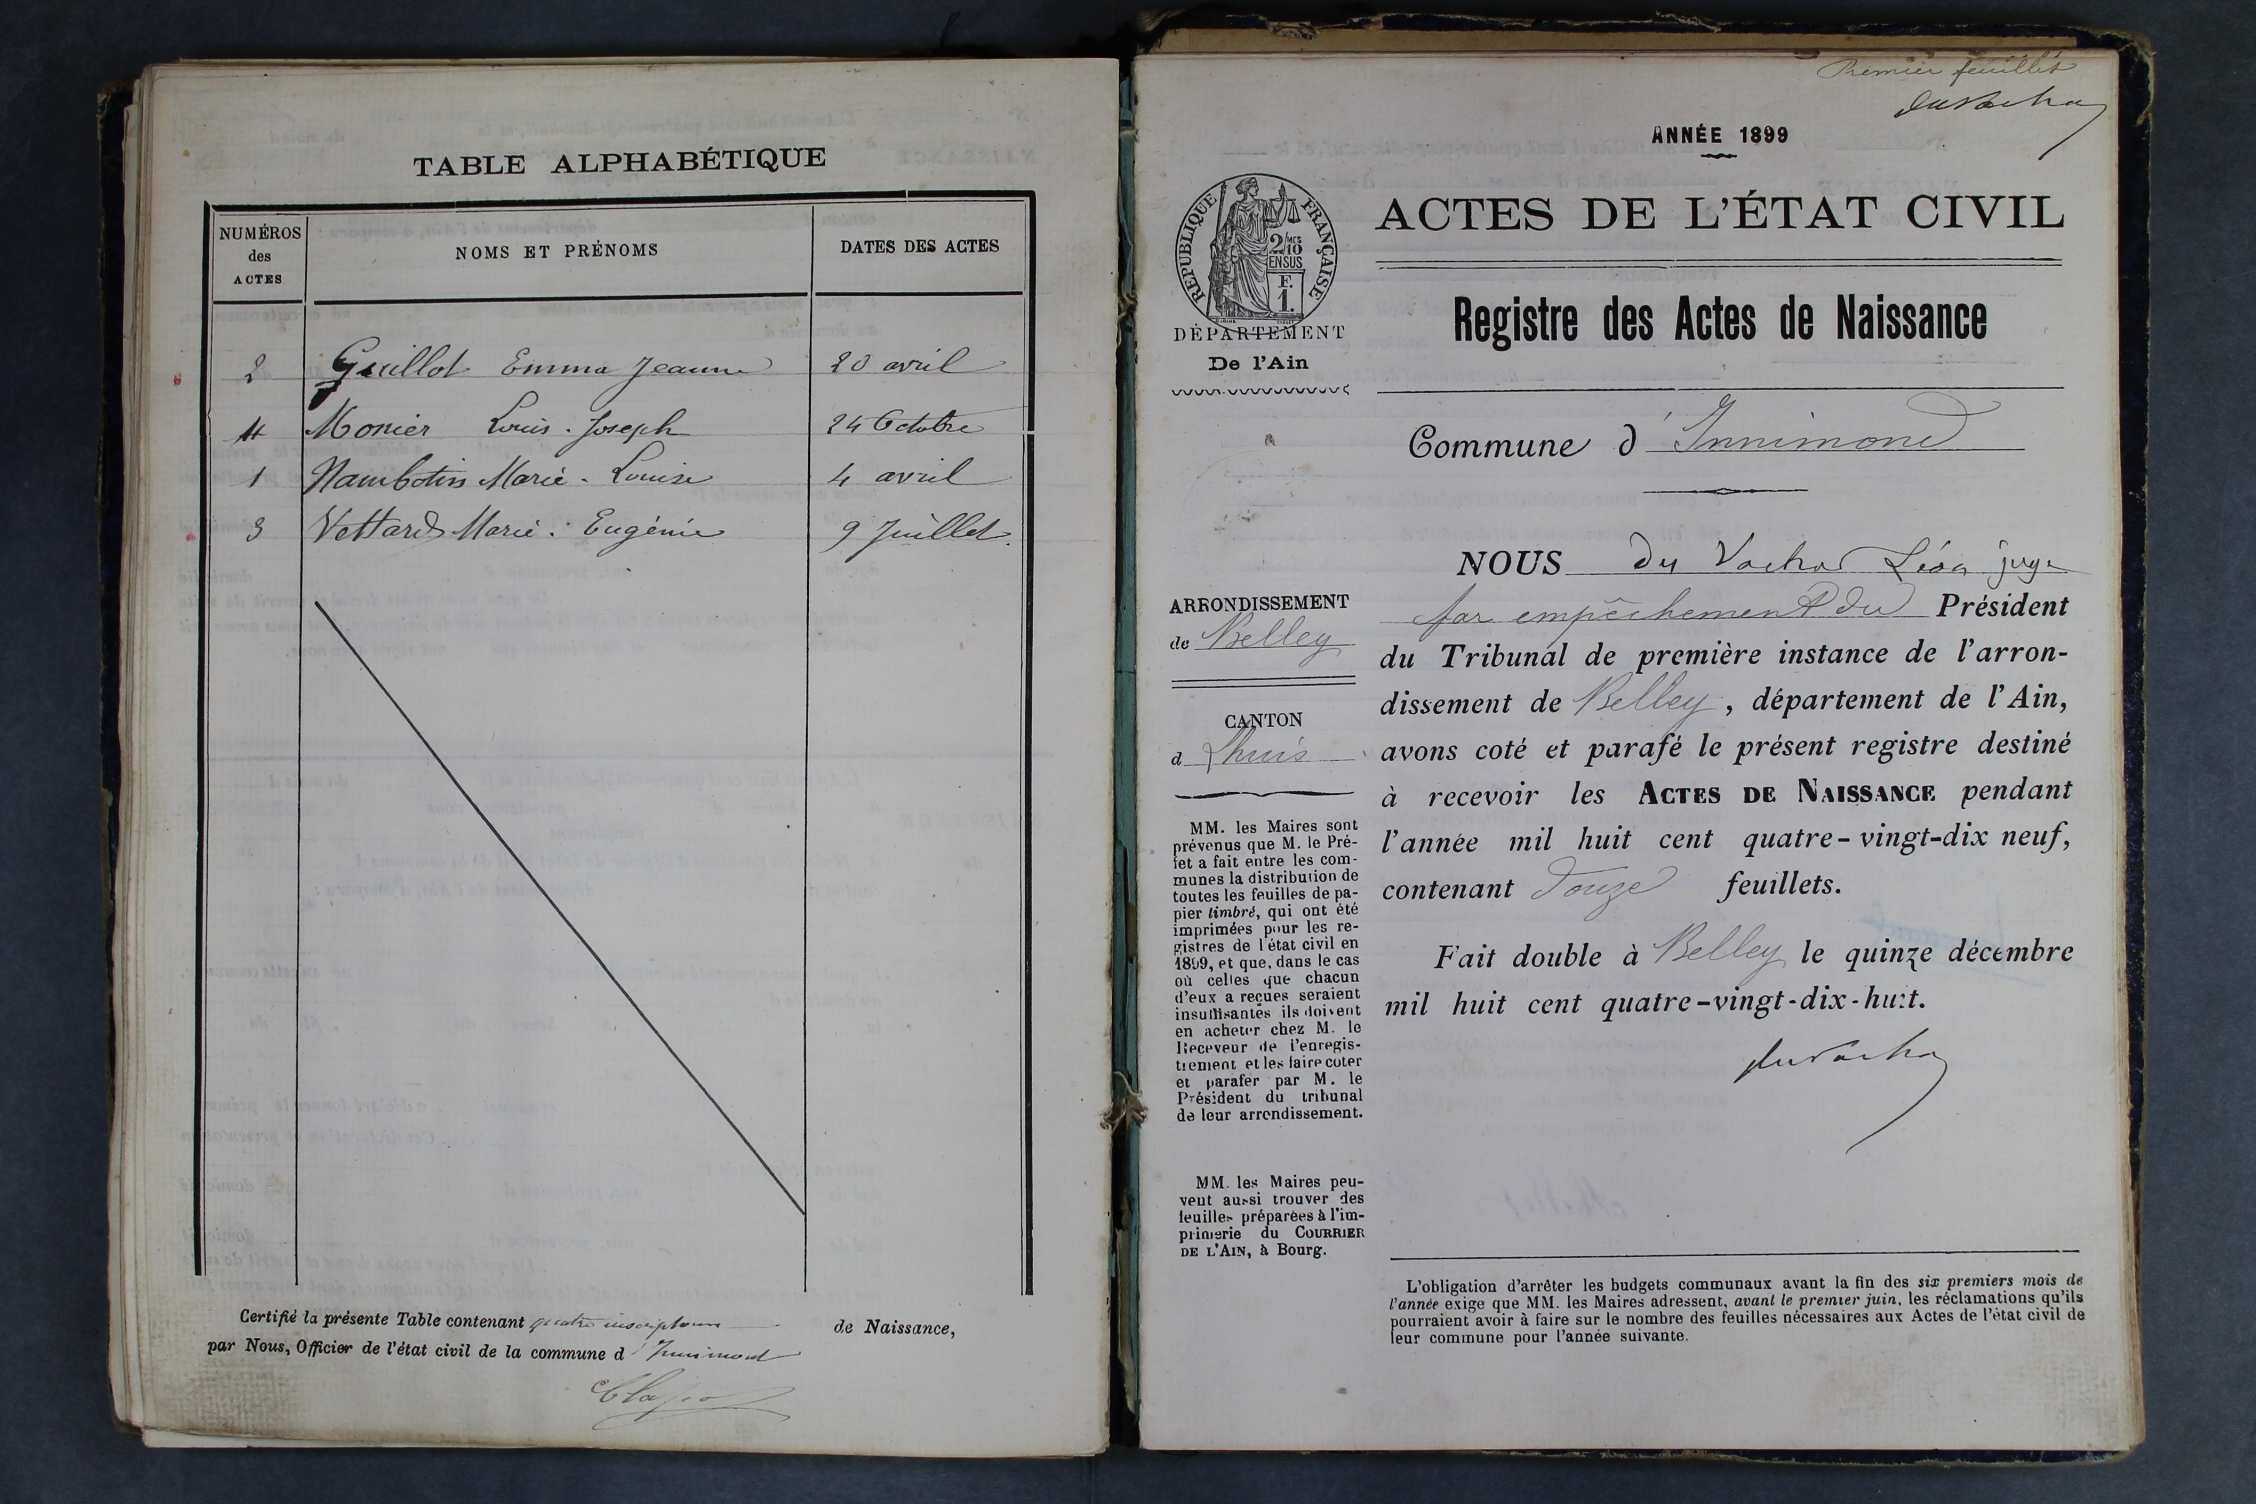 TABLE ALPHABÉTIQUE
NUMÉROS
des
ACTES
NOMS ET PRÉNOMS
DATES DES ACTES
2 Guillot Emma Jeanne 20 avril
4 Monier Louis-Joseph 24 Octobre
1 Nambotin Marie-Louise 4 avril
3 Vettard Marie-Eugénie 9 Juillet.
Certifié la présente Table contenant quatre inscriptions de Naissance,
par Nous, Officier de l'état civil de la commune d'Innimond
Premier feuillet
ANNÉE 1899
RÉPUBLIQUE FRANÇAISE
2/10 MES
EN SUS
F.
1.
DÉPARTEMENT
De l'Ain
ACTES DE L'ÉTAT CIVIL
Registre des Actes de Naissance
Commune d'Innimond
ARRONDISSEMENT
de Belley
CANTON
d Lhuis
MM. les Maires sont
prévenus que M. le Pré-
fet a fait entre les com-
munes la distribution de
toutes les feuilles de pa-
pier timbré, qui ont été
imprimées pour les re-
gistres de l'état civil en
1899, et que, dans le cas
où celles que chacun
d'eux a reçues seraient
insuffisantes ils doivent
en acheter chez M. le
Receveur de l'enregis-
trement et les faire coter
et parafer par M. le
Président du tribunal
de leur arrondissement.
MM. les Maires peu-
vent aussi trouver des
feuilles préparées à l'im-
primerie du COURRIER
DE L'AIN, à Bourg.
NOUS du Vachat Léon juge
par empêchement du Président
du Tribunal de première instance de l'arron-
dissement de Belley, département de l'Ain,
avons coté et parafé le présent registre destiné
à recevoir les ACTES DE NAISSANCE pendant
l'année mil huit cent quatre-vingt-dix neuf,
contenant Douze feuillets.
Fait double à Belley le quinze décembre
mil huit cent quatre-vingt-dix-huit.
L'obligation d'arrêter les budgets communaux avant la fin des six premiers mois de
l'année exige que MM. les Maires adressent, avant le premier juin, les réclamations qu'ils
pourraient avoir à faire sur le nombre des feuilles nécessaires aux Actes de l'état civil de
leur commune pour l'année suivante.